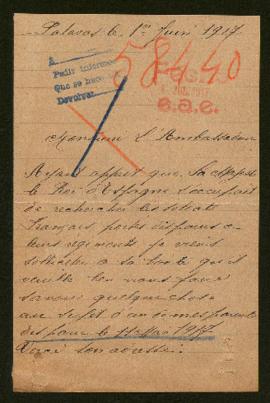 Palavas le 1er Juin 1917
A
Pedir informe
que se hace
Devolver
58440
1917
Monsieur L'Ambassadeur
Ayant appris que Sa Majesté
le Roi d'Espagne s'occupait
de rechercher les soldats
français portés disparus a
leurs régiments je viens
solliciter a sa bonté qu'il
veuille bien nous faire
savoir quelque chose
au sujet d'un de mes parents
disparu le 11 Mai 1917
Voici son adresse: